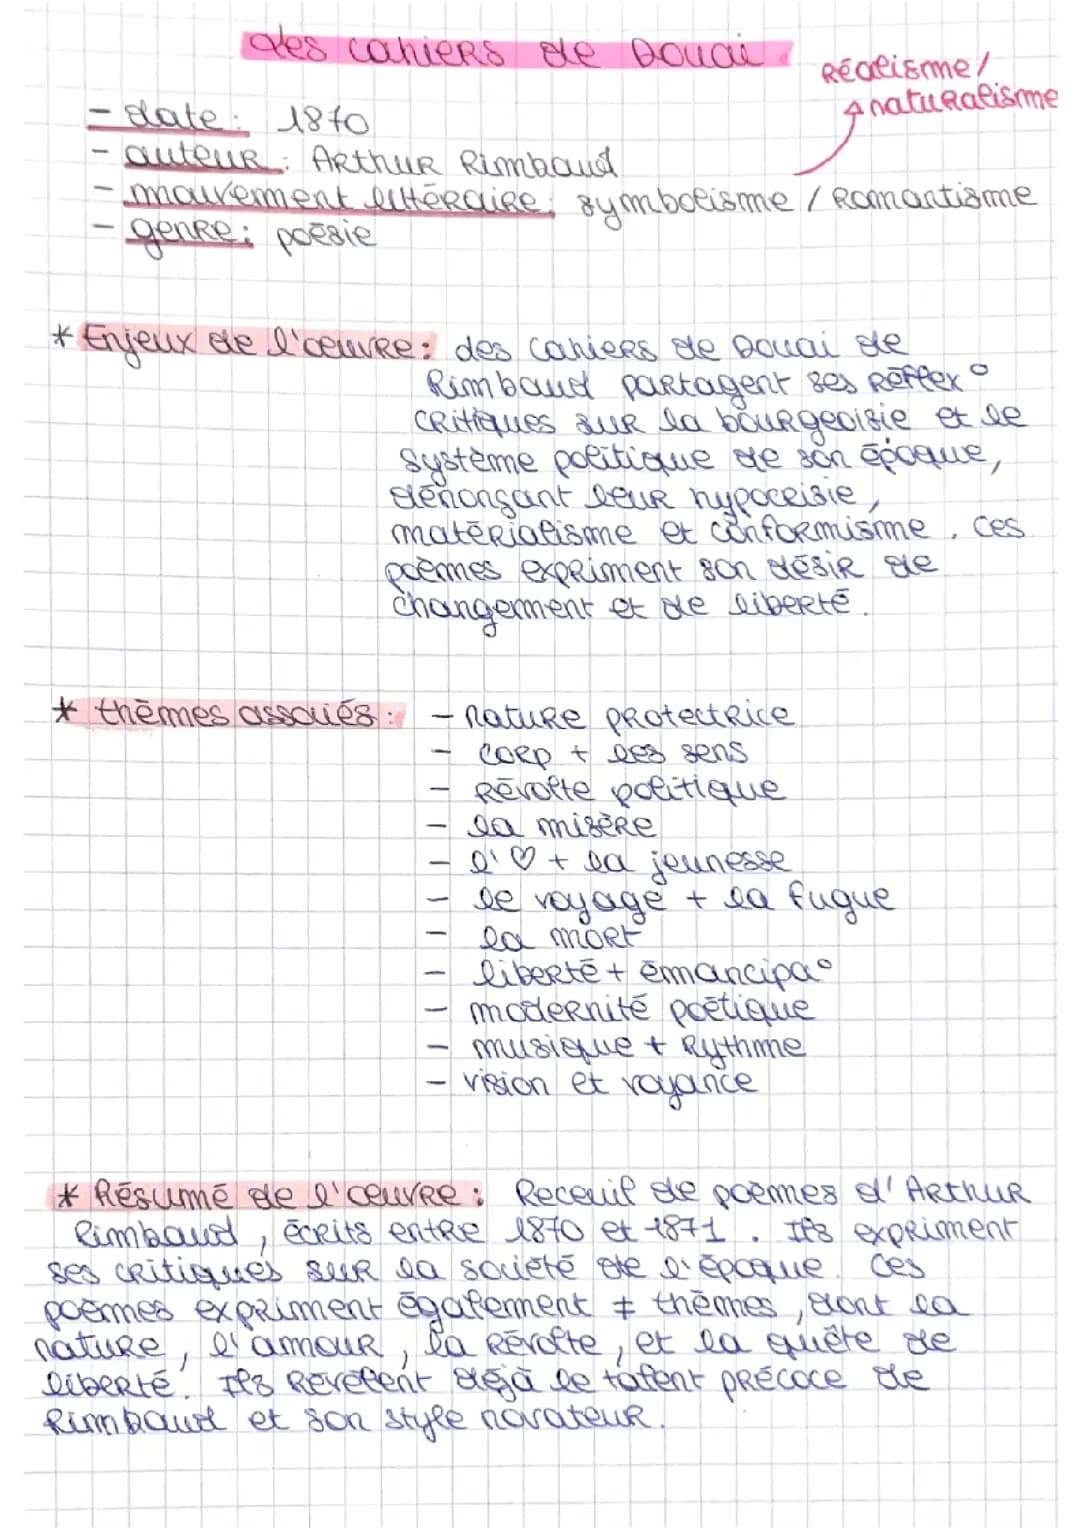 des cahiers de Douai
Réalisme/
naturalisme
- date : 1870
- auteur : Arthur Rimbaud
- mouvement littéraire : symbolisme / Romantisme
- genre : poésie
* Enjeux de l'œuvre : des cahiers de Douai de
Rimbaud partagent ses réflex°
critiques sur la bourgeoisie et le
système politique de son époque,
dénonçant leur hypocrisie,
matérialisme et conformisme. Ces
poèmes expriment son désir de
changement et de liberté.
* thèmes associés : - nature protectrice
- corp + les sens
- Révolte politique
- la misère
- l'♡ + la jeunesse
- le voyage + la fugue
- la mort
- liberté + émancipa°
- modernité poétique
- musique + Rythme
- vision et voyance
* Résumé de l'œuvre : Receuil de poèmes d'Arthur
Rimbaud, écrits entre 1870 et 1871. Ils expriment
ses critiques sur la société de l'époque. Ces
poèmes expriment également ≠ thèmes, dont la
nature, l'amour, la Révolte, et la quête de
liberté. Ils Révèlent déjà le talent précoce de
Rimbaud et son style novateur.